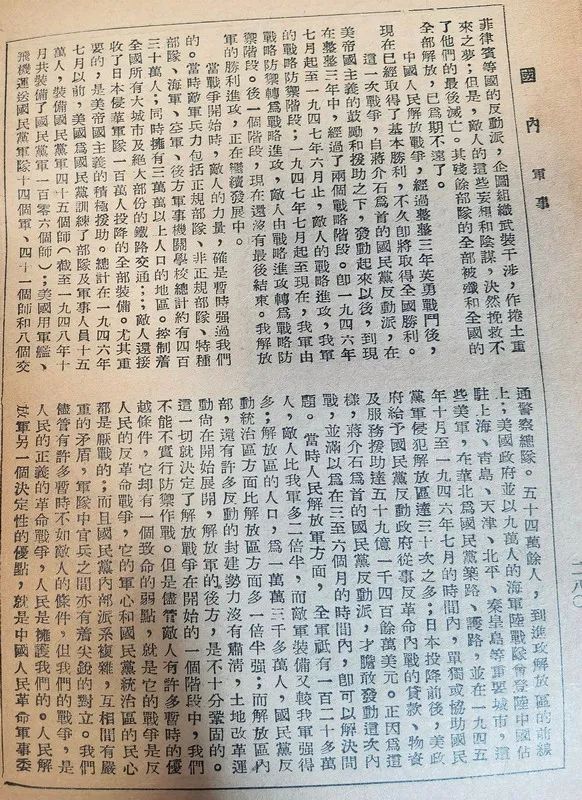 國內 軍事
二八〇
菲律賓等國的反動派，企圖組織武裝干涉，作捲土重
來之夢；但是，敵人的這些妄想和陰謀，決然挽救不
了他們的最後滅亡。其殘餘部隊的全部被殲和全國的
全部解放，已爲期不遠了。
中國人民解放戰爭，經過整整三年英勇戰鬥後，
現在已經取得了基本勝利，不久卽將取得全國勝利。
這一次戰爭，自蔣介石爲首的國民黨反動派，在
美帝國主義的鼓勵和援助之下，發動起來以後，到現
在整整三年中，經過了兩個戰略階段。卽一九四六年
七月起至一九四七年六月止，敵人的戰略進攻，我軍
的戰略防禦階段；一九四七年七月起至現在，我軍由
戰略防禦轉爲戰略進攻，敵人由戰略進攻轉爲戰略防
禦階段。後一個階段，現在還沒有最後結束。我解放
軍的勝利進攻，正在繼續發展中。
當戰爭開始時，敵人的力量，確是暫時強過我們
的。當時敵軍兵力包括正規部隊、非正規部隊、特種
部隊、海軍、空軍、後方軍事機關學校總計約有四百
三十萬人；同時擁有三萬萬以上人口的地區。控制着
全國所有大城市及絕大部份的鐵路交通……敵人還接
收了日本侵華軍隊一百萬人投降的全部裝備。尤其重
要的，是美帝國主義的積極援助。總計在一九四六年
七月以前，美國爲國民黨訓練了部隊及軍事人員十五
萬人，裝備國民黨軍四十五個師（截至一九四八年十
月共裝備了國民黨軍一百零六個師）；美國用軍艦、
飛機運送國民黨軍隊十四個軍、四十一個師和八個交
通警察總隊。五十四萬餘人，到進攻解放區的前線
上；美國政府並以九萬人的海軍陸戰隊會登陸中國佔
駐上海、靑島、天津、北平、秦皇島等重要城市，這
些美軍，在華北爲國民黨築路、護路，並在一九四五
年十月至一九四六年七月的時間內，單獨或協助國民
黨軍侵犯解放區達三十次之多；日本投降前後，美政
府給予國民黨反動政府從事反革命內戰的貸款、物資
及服務援助達五十九億一千四百餘萬美元。正因爲這
樣，蔣介石爲首的國民黨反動派，才膽敢發動這次內
戰，並滿以爲在三至六個月的時間內，卽可以解決問
題。當時人民解放軍方面，全軍祇有一百二十多萬
人，敵人比我軍多二倍半，而敵軍裝備又較我軍強得
多；解放區的人口，爲一萬萬三千多萬人，國民黨反
動統治區方面比解放區方面多一倍半強；而解放區內
部，還有許多反動的封建勢力沒有肅清，土地改革運
動尙在開始展開，解放軍的後方，是不十分鞏固的。
這一切就決定了解放戰爭在開始的一個階段中，我們
不能不實行防禦作戰。但是儘管敵人有許多暫時的優
越條件，它却有一個致命的弱點，就是它的戰爭是反
人民的反革命戰爭，它的軍心和國民黨統治區的民心
都是厭戰的；而且國民黨內部派系複雜，互相間有嚴
重的矛盾，軍隊中官兵之間亦有着尖銳的對立。我們
儘管有許多暫時不如敵人的條件，但我們的戰爭，是
人民的正義的革命戰爭，人民是擁護我們的。人民解
放軍另一個決定性的優點，就是中國人民革命軍事委